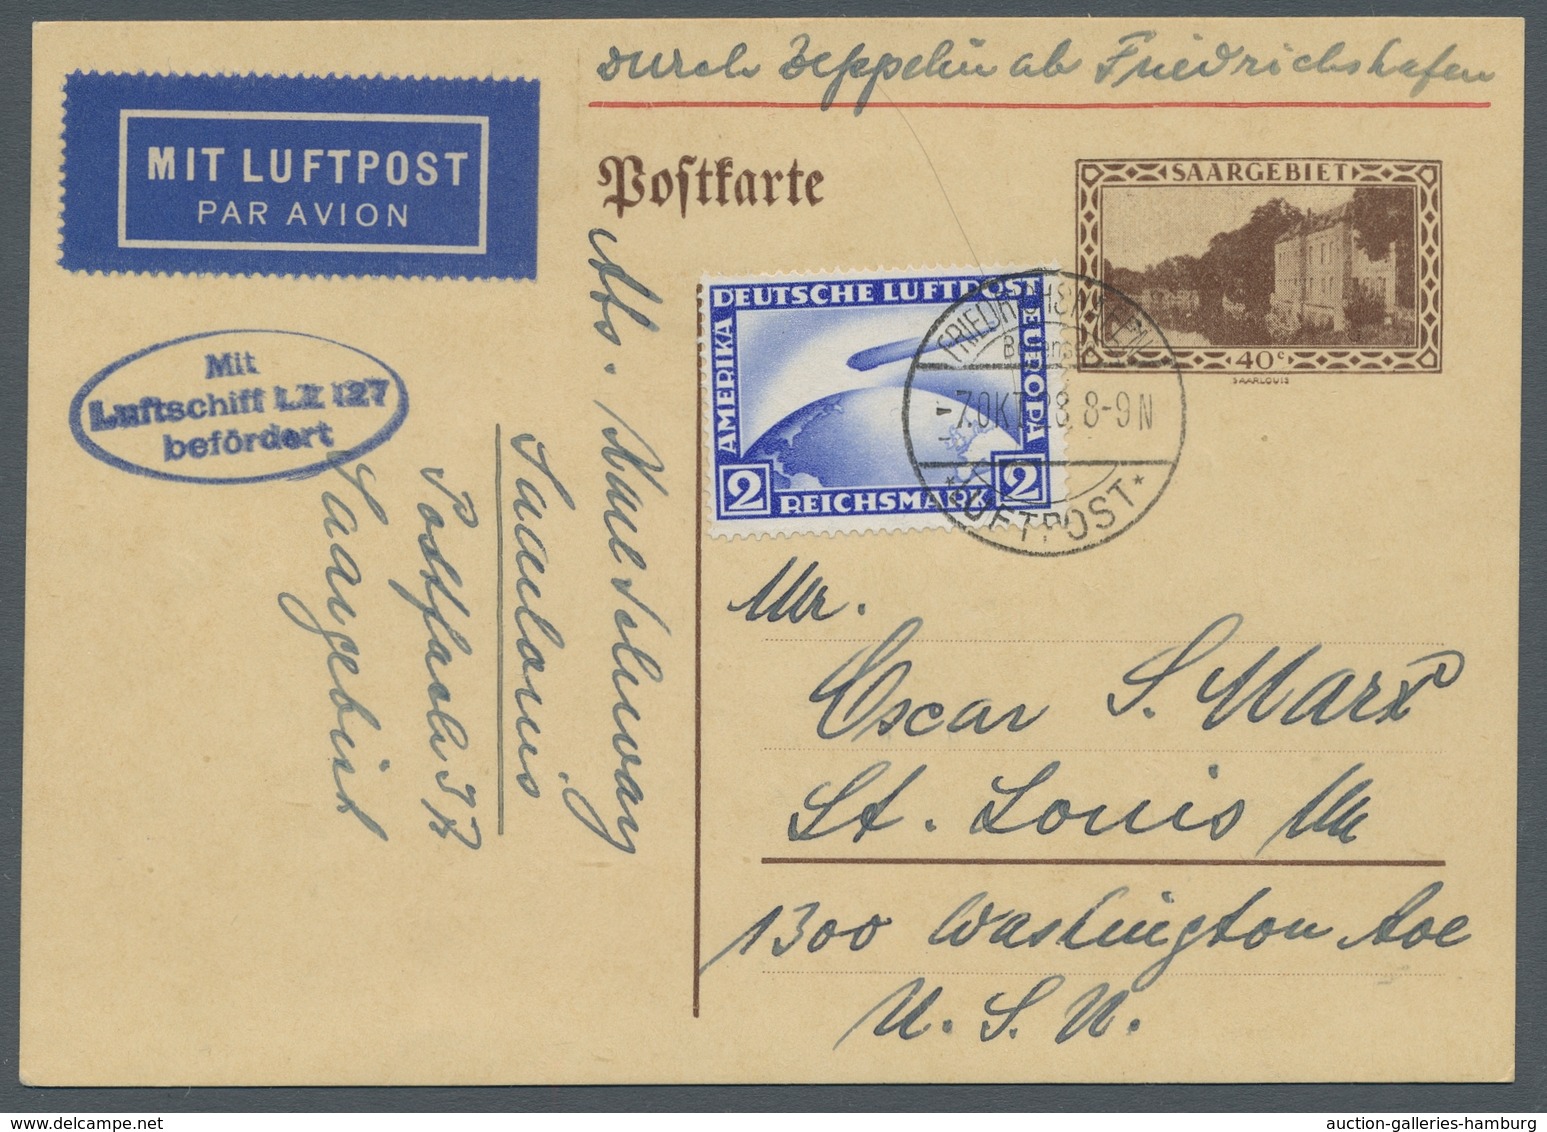 Durch Zeppelin ab Friedrichshafen
MIT LUFTPOST
PAR AVION
Postkarte
SAARGEBIET
40c
SAARLOUIS
DEUTSCHE LUFTPOST
AMERIKA
EUROPA
2 REICHSMARK 2
FRIEDRICHSHAFEN
-7.OKT.28.8-9N
*LUFTPOST*
Mit
Luftschiff LZ 127
befördert
Abs.
Saarlouis
Postfach 37
Saargebiet
Mr.
Oscar S. Marx
St. Louis Mo
1300 Washington Ave
U. S. A.
auction-galleries-hamburg.com